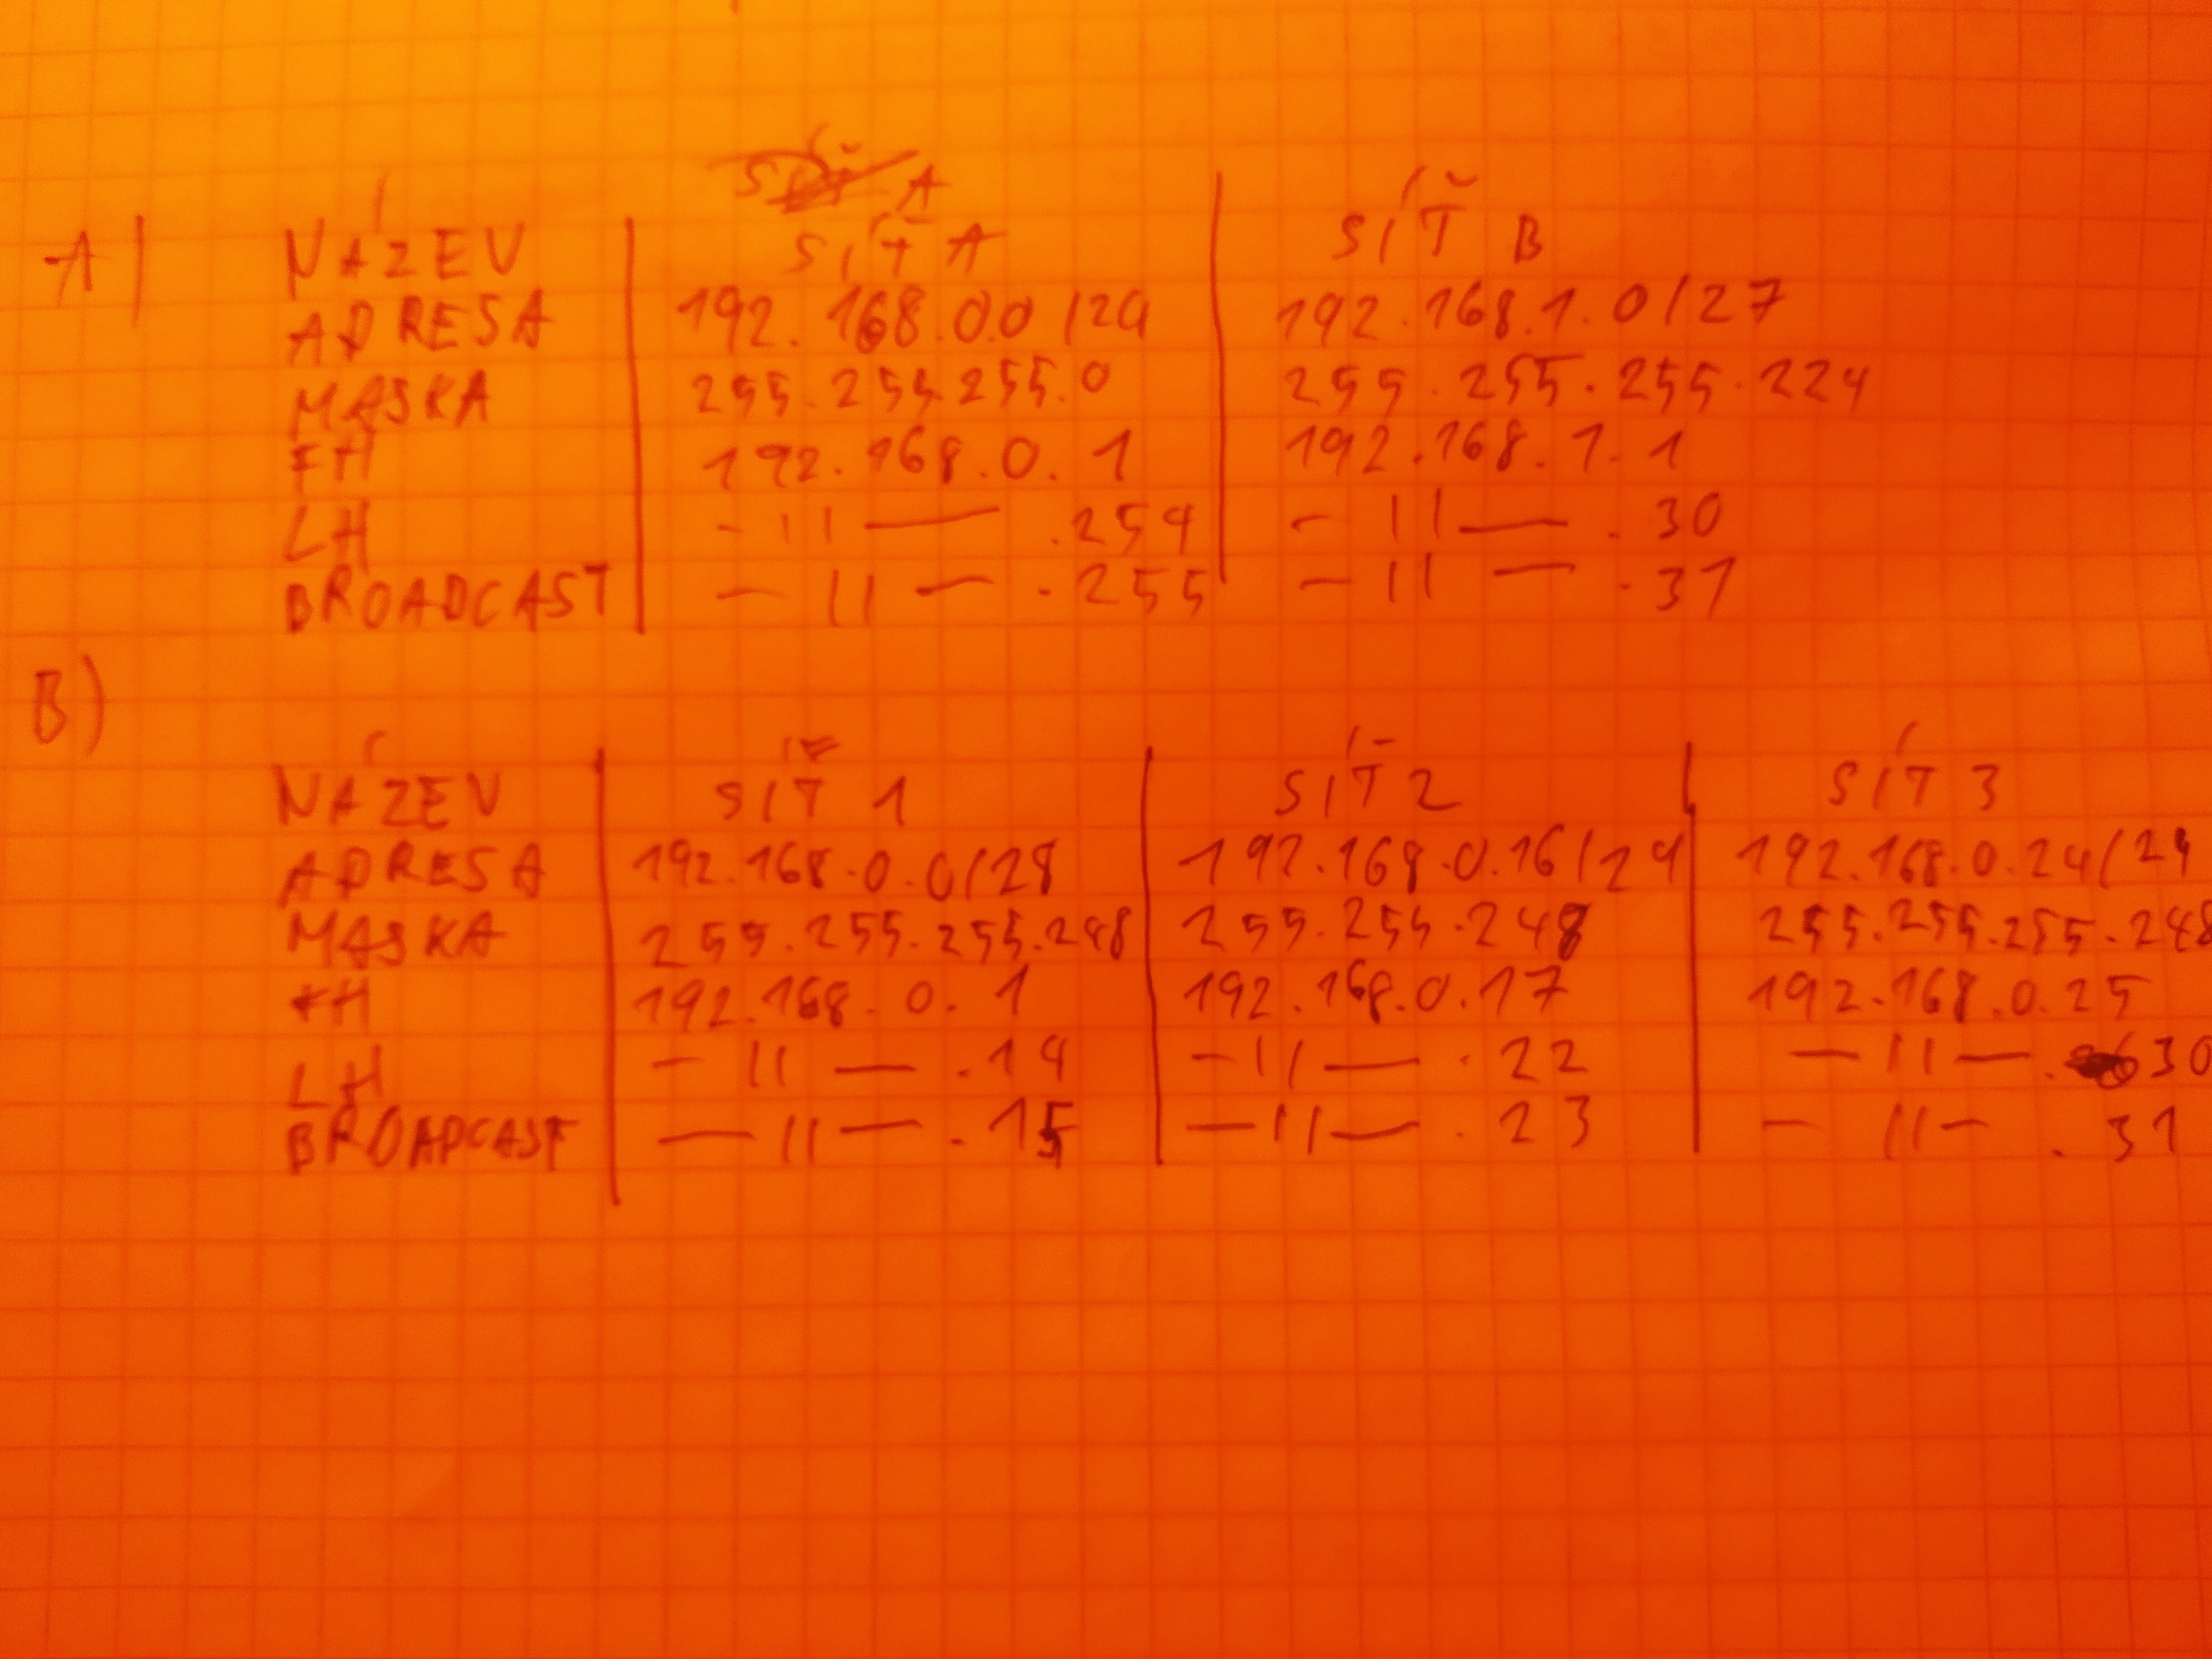 A)
NÁZEV SÍŤ A SÍŤ B
ADRESA 192.168.0.0/24 192.168.1.0/27
MASKA 255.255.255.0 255.255.255.224
FH 192.168.0.1 192.168.1.1
LH -11— .254 -11— .30
BROADCAST -11— .255 -11— .31
B)
NÁZEV SÍŤ 1 SÍŤ 2 SÍT 3
ADRESA 192.168.0.0/28 192.168.0.16/29 192.168.0.24/29
MASKA 255.255.255.248 255.255.248 255.255.255.248
FH 192.168.0.1 192.168.0.17 192.168.0.25
LH -11— .14 -11— .22 -11— .30
BROADCAST -11— .15 -11— .23 -11— .31